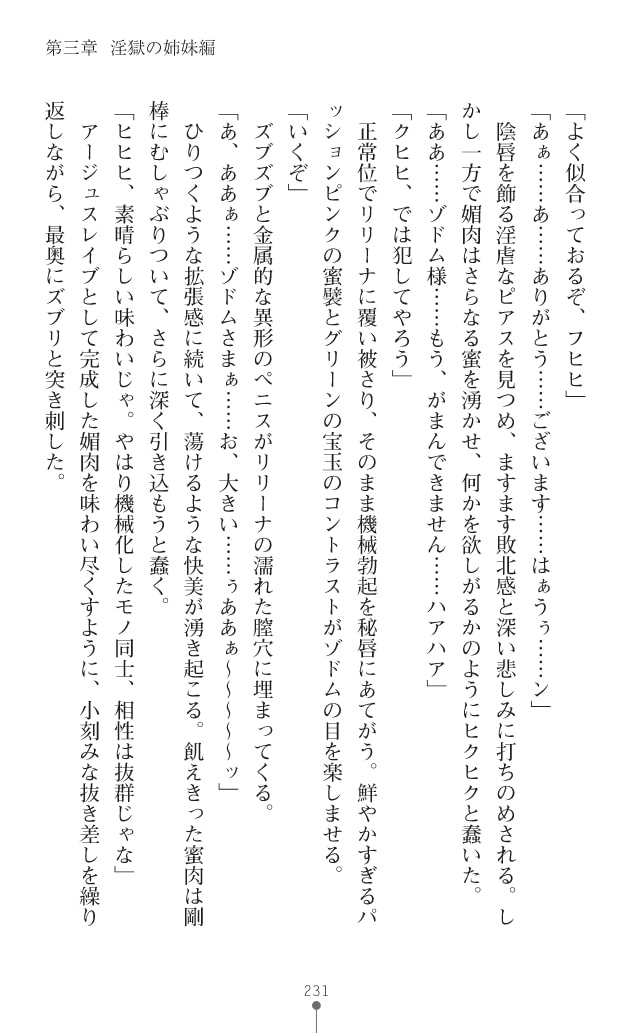 第三章 淫獄の姉妹編
「よく似合っておるぞ、フヒヒ」
「あぁ……あ……ありがとう……ございます……はぁうぅ……ン」
陰唇を飾る淫虐なピアスを見つめ、ますます敗北感と深い悲しみに打ちのめされる。し
かし一方で媚肉はさらなる蜜を湧かせ、何かを欲しがるかのようにヒクヒクと蠢いた。
「ああ……ゾドム様……もう、がまんできません……ハアハア」
「クヒヒ、では犯してやろう」
正常位でリリーナに覆い被さり、そのまま機械勃起を秘唇にあてがう。鮮やかすぎるパ
ッションピンクの蜜襞とグリーンの宝玉のコントラストがゾドムの目を楽しませる。
「いくぞ」
ズブズブと金属的な異形のペニスがリリーナの濡れた膣穴に埋まってくる。
「あ、ああぁ……ゾドムさまぁ……お、大きい……ぅああぁ〜〜〜〜〜ッ」
ひりつくような拡張感に続いて、蕩けるような快美が湧き起こる。飢えきった蜜肉は剛
棒にむしゃぶりついて、さらに深く引き込もうと蠢く。
「ヒヒヒ、素晴らしい味わいじゃ。やはり機械化したモノ同士、相性は抜群じゃな」
アージュスレイブとして完成した媚肉を味わい尽くすように、小刻みな抜き差しを繰り
返しながら、最奥にズブリと突き刺した。
231